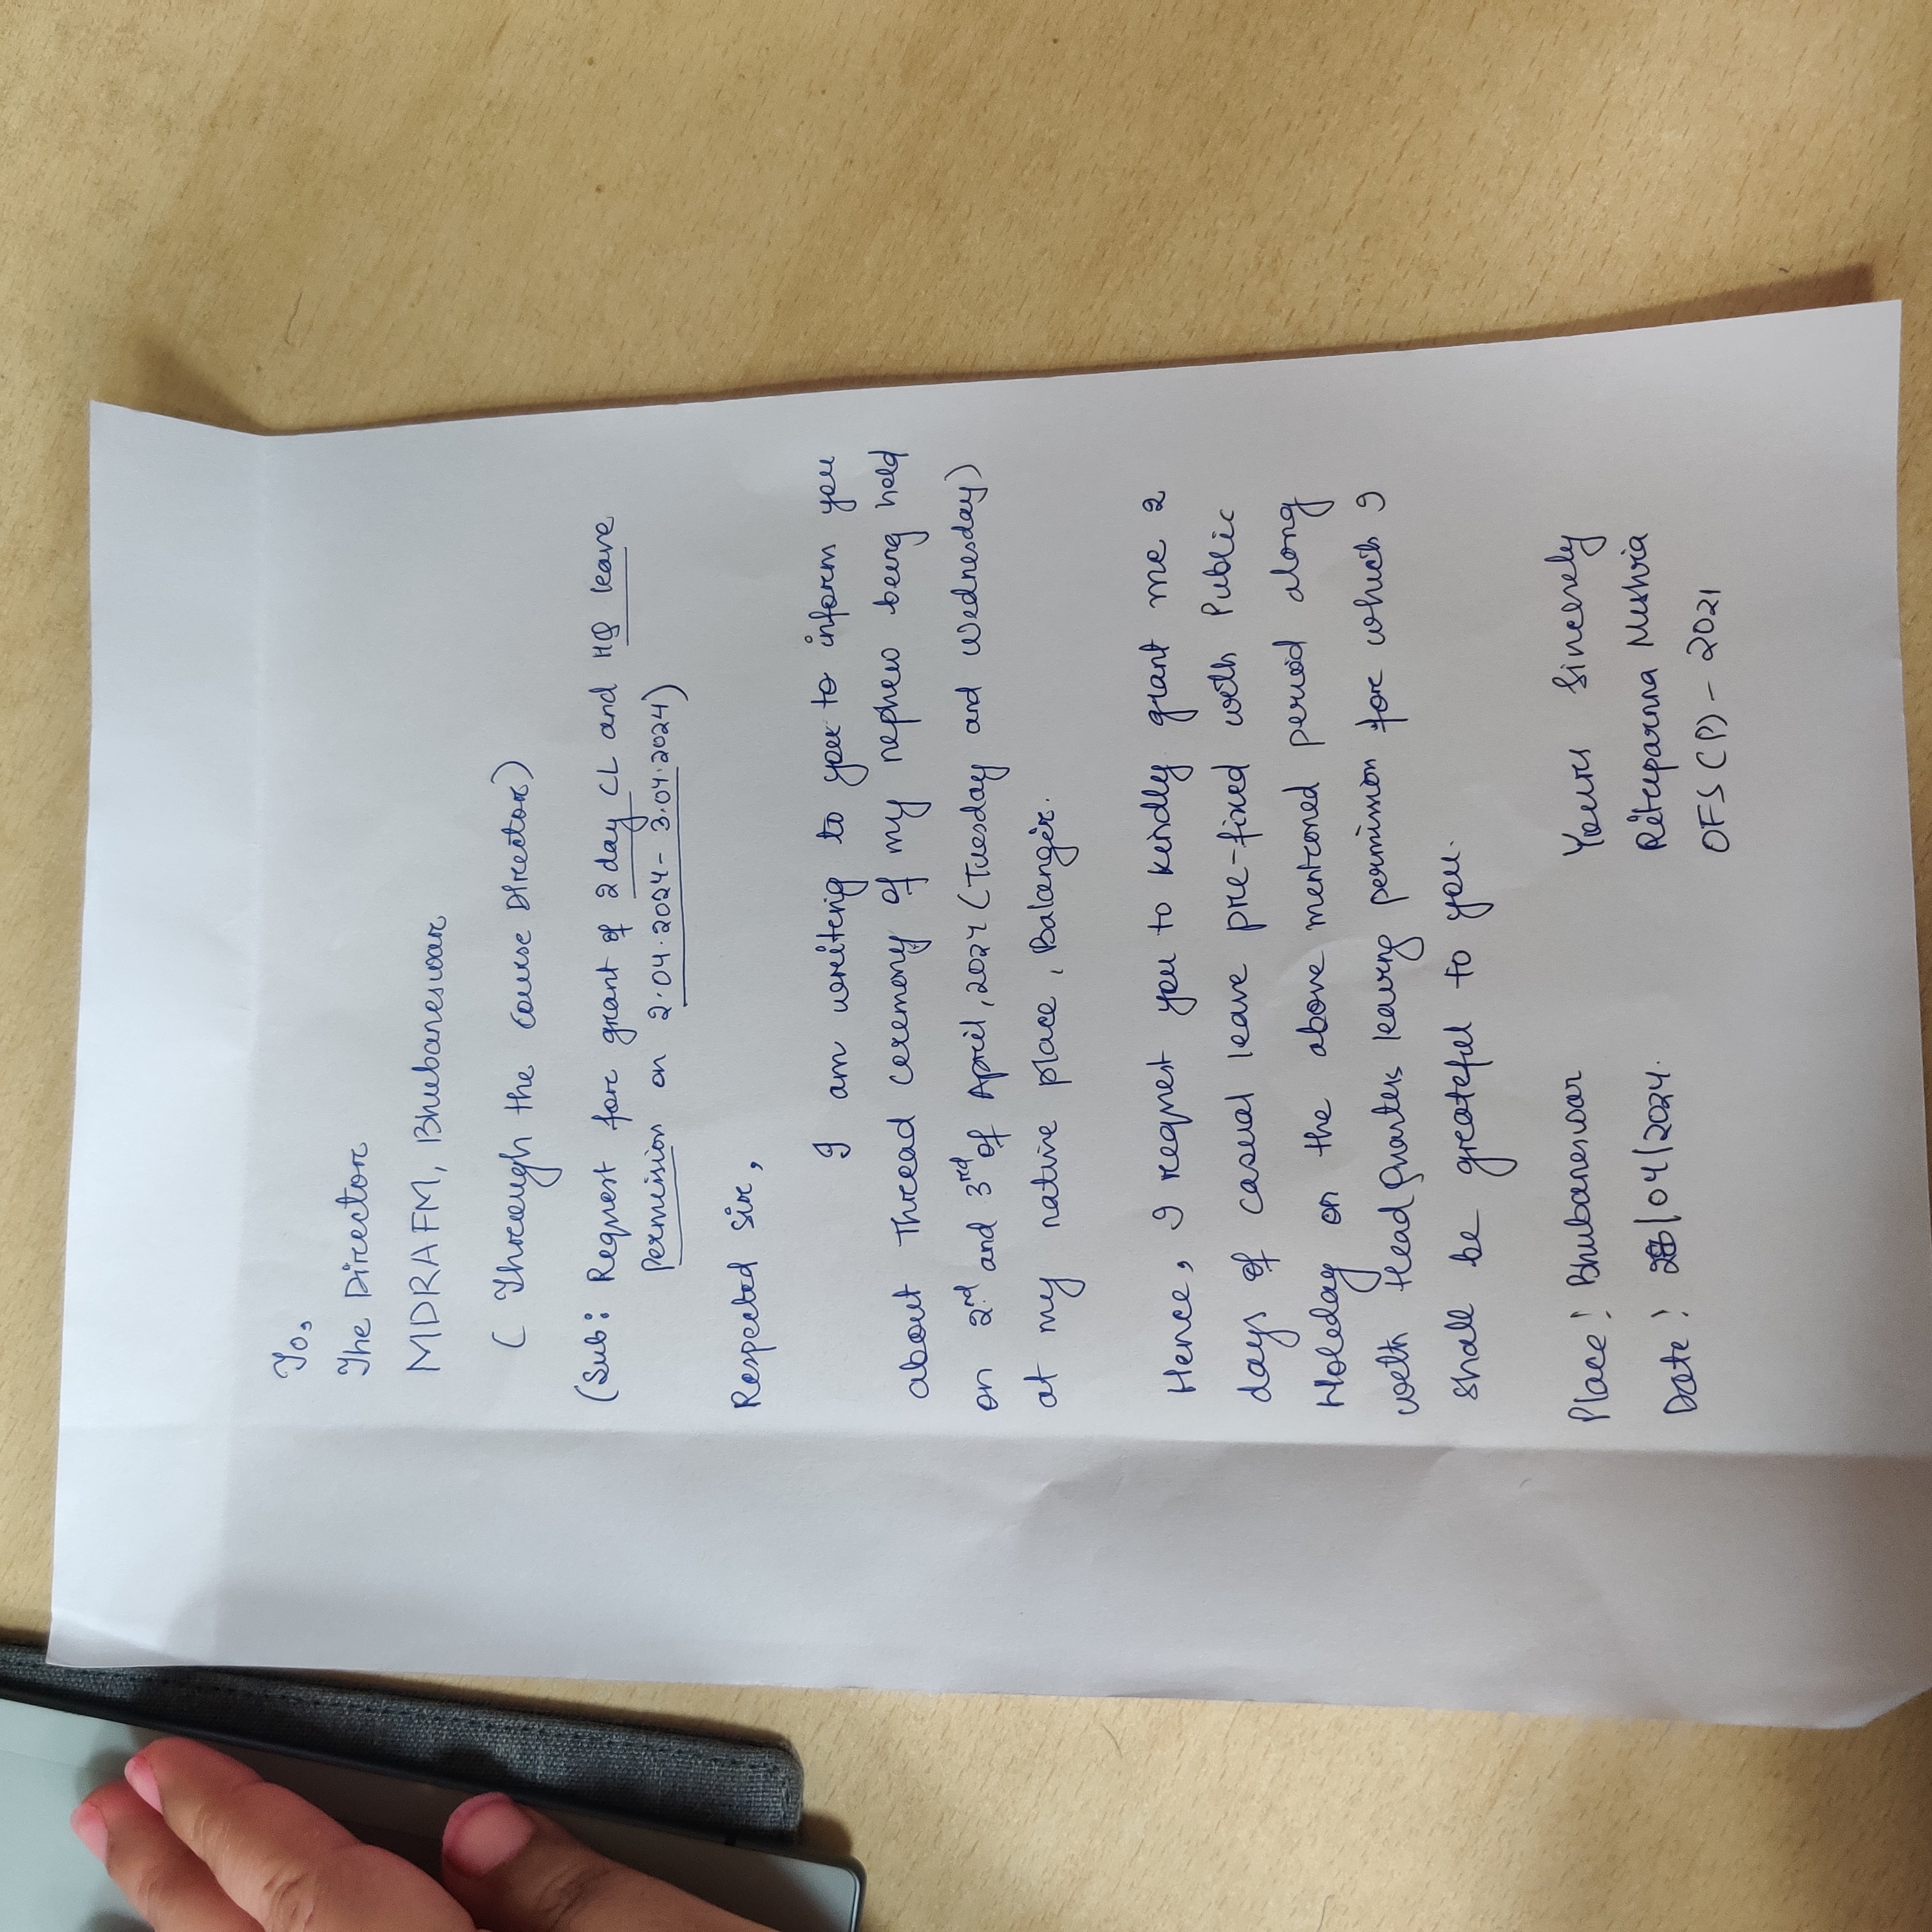 To,
The Director
MDRAFM, Bhubaneswar
( Through the Course Director)
(Sub: Request for grant of 2 day CL and HQ leave
Permission on 2.04.2024- 3.04.2024)
Respected Sir,
I am writing to you to inform you
about Thread Ceremony of my nephew being held
on 2nd and 3rd of April, 2024 (Tuesday and Wednesday)
at my native place, Balangir.
Hence, I request you to kindly grant me 2
days of casual leave pre-fixed with Public
Holiday on the above mentioned period along
with Head Quarters leaving permission for which I
shall be greateful to you.
Place: Bhubaneswar
Date: /04/2024.
Yours Sincerely
Rituparnna Mishra
OFS (P) - 2021